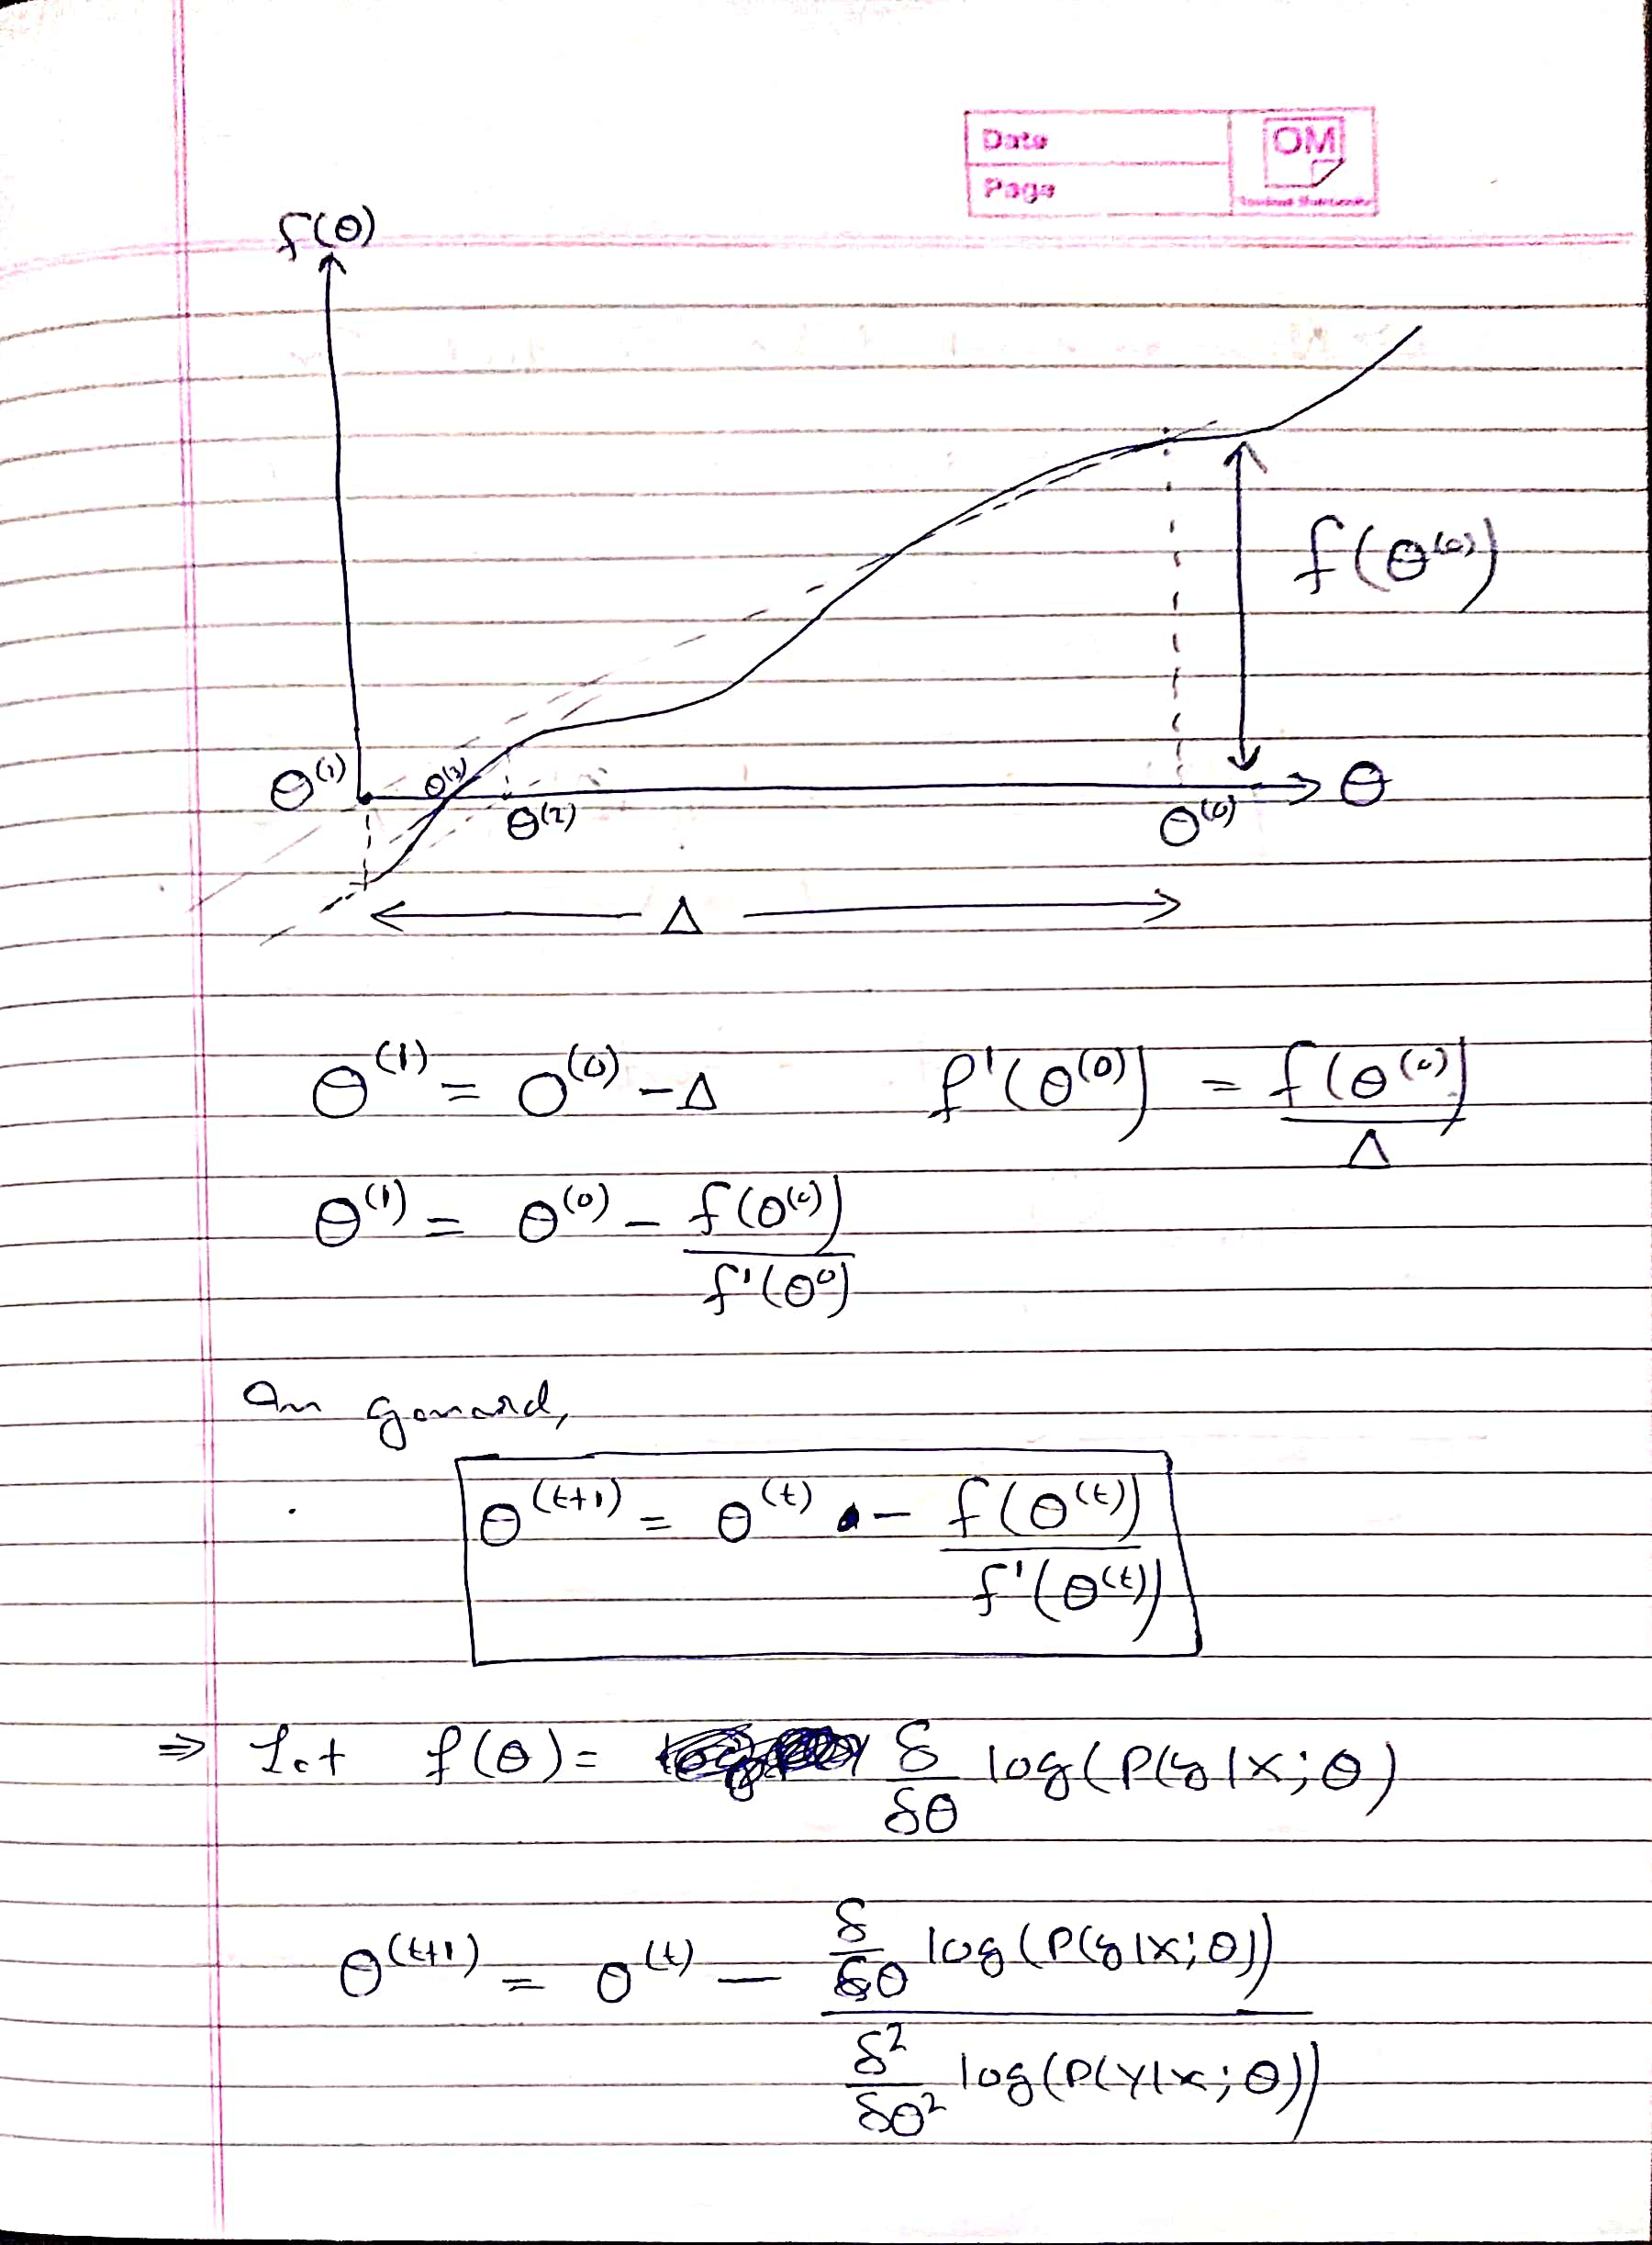 Date
OM
Page
f(θ)
f(θ⁽⁰⁾)
θ⁽¹⁾ θ⁽³⁾ θ⁽²⁾ θ⁽⁰⁾ θ
Δ
θ⁽¹⁾ = θ⁽⁰⁾ - Δ f'(θ⁽⁰⁾) = f(θ⁽⁰⁾) / Δ
θ⁽¹⁾ = θ⁽⁰⁾ - f(θ⁽⁰⁾) / f'(θ⁰)
In general,
θ⁽ᵗ⁺¹⁾ = θ⁽ᵗ⁾ - f(θ⁽ᵗ⁾) / f'(θ⁽ᵗ⁾)
⇒ Let f(θ) = δ/δθ log(P(y|x;θ)
θ⁽ᵗ⁺¹⁾ = θ⁽ᵗ⁾ - δ/δθ log(P(y|x;θ)) / δ²/δθ² log(P(y|x;θ))